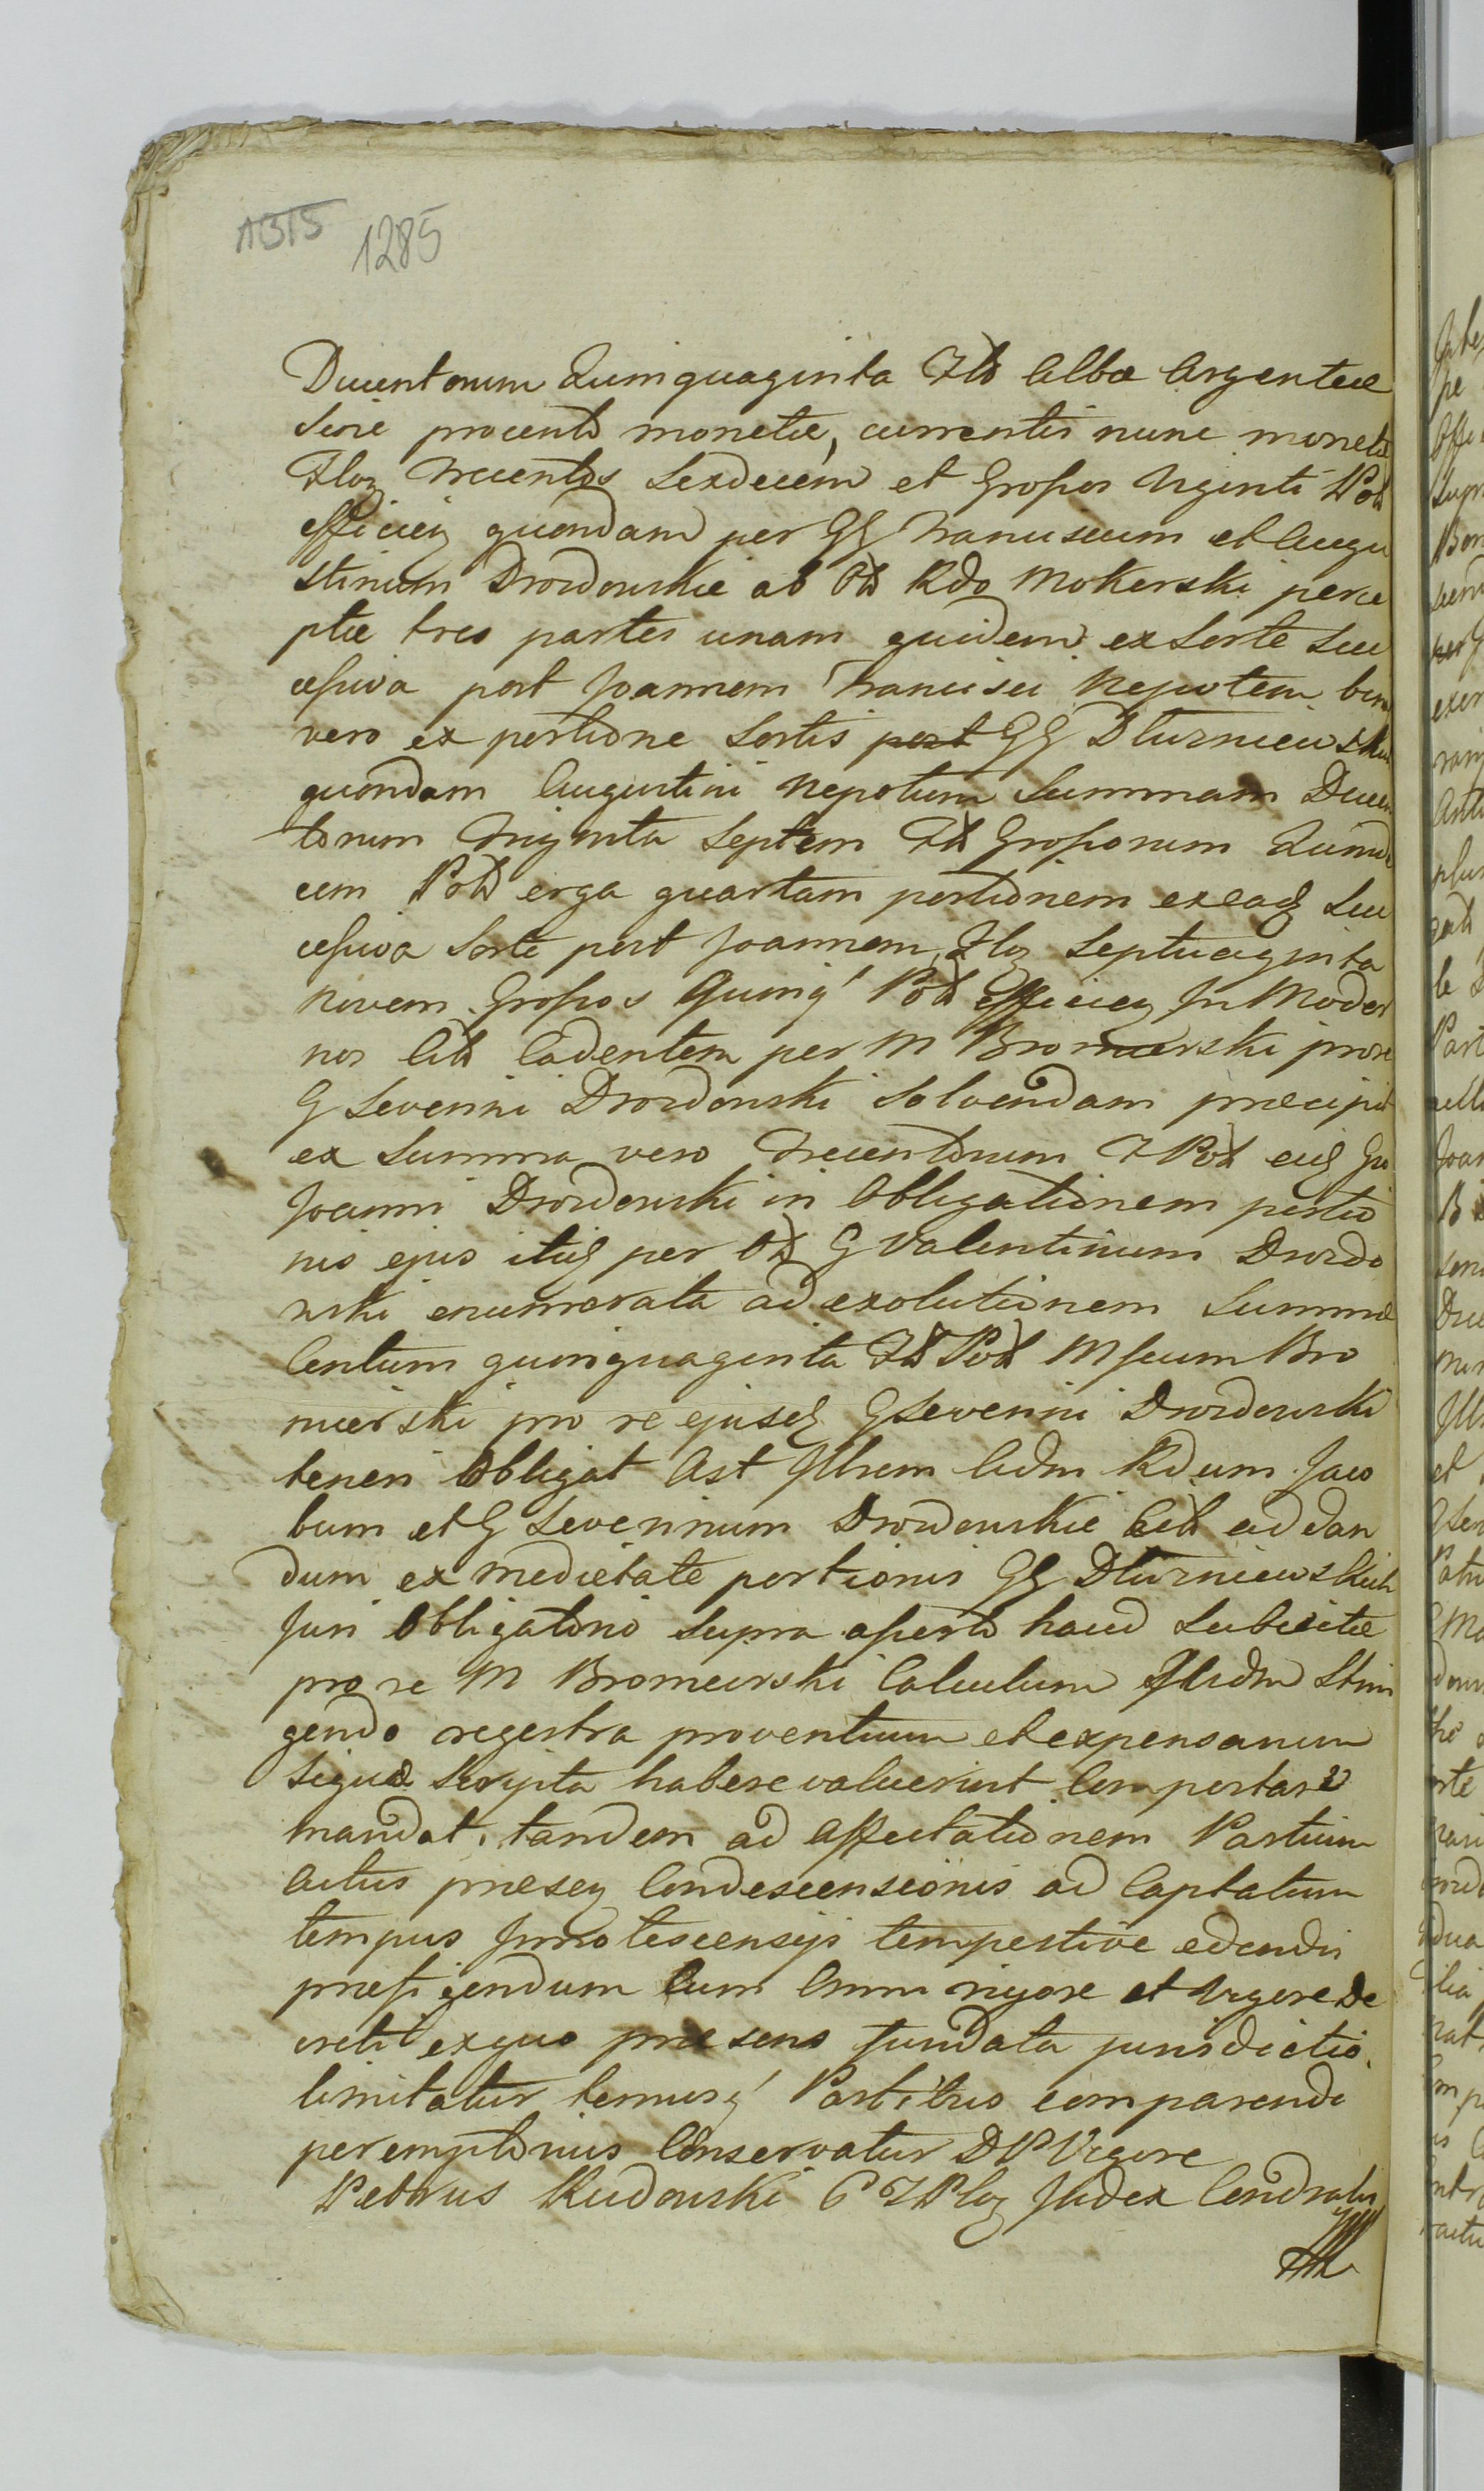 1315 1285
Ducentorum Quinquaginta Fld Albæ Argenteæ
sive procento monetæ, currentis nunc moneta
Floz Trecentos Sexdecem et Grossos Viginti Pol
efficien quondam per GG Franciscum et Augu
stinum Drozdowskie ab Od Rdo Mokerski perce
ptæ tres partes unam quidem ex Sorte Suc
cessiva post Joannem Francisci Nepotem bin
vero ex portione Sortis post GG Dłuzniewskie
quondam Augustini Nepotum Summam Ducen
torum Triginta Septem Fld Grossorum Quinde
cem Pold erga quartam portionem ex ead Suc
cessiva Sorte post Joannem, Floz Septuaginta
novem Grossos Quinq Pold efficien In Moder
nos Citt Cadentem per M Bromierski pro re
G Severini Drozdowski Solvendam præcipit
ex Summa vero Trecentorum F Pol eid Go
Joanni Drozdowski in Obligationem portio
nis ejus itid per Od G Valentinum Drozdo
wski enumerata ad exolutionem Summæ
Centum quinquaginta Fld Pold Mfcum Bro
mierski pro re ejusd G Severini Drozdowski
teneri Obligat Ast Illrem Adm Rdum Jaco
bum et G Severinum Drozdowskie Citt ad dan
dum ex medietate portionis GG Dłuzniewskich
Juri Obligatorio supra aperto haud Subiectæ
pro re M Bromierski Calculum Illidm Strin
gendo regestra proventuum et expensarum
siquæ Scripta habere voluerint Comportare
mandat, tandem ad Affectationem Partium
Actus præsen Condescensionis ad Captatum
tempus Innotescensys tempestive edendis
præfigendum Cum Omni rigore et Vigore De
creti ex quo præsens fundata jurisdictio
limitatur termusq Partibus comparendi
peremptorius Conservatur DP Vigore
Petrus Rudowski P Z Ploz Judex Condralis